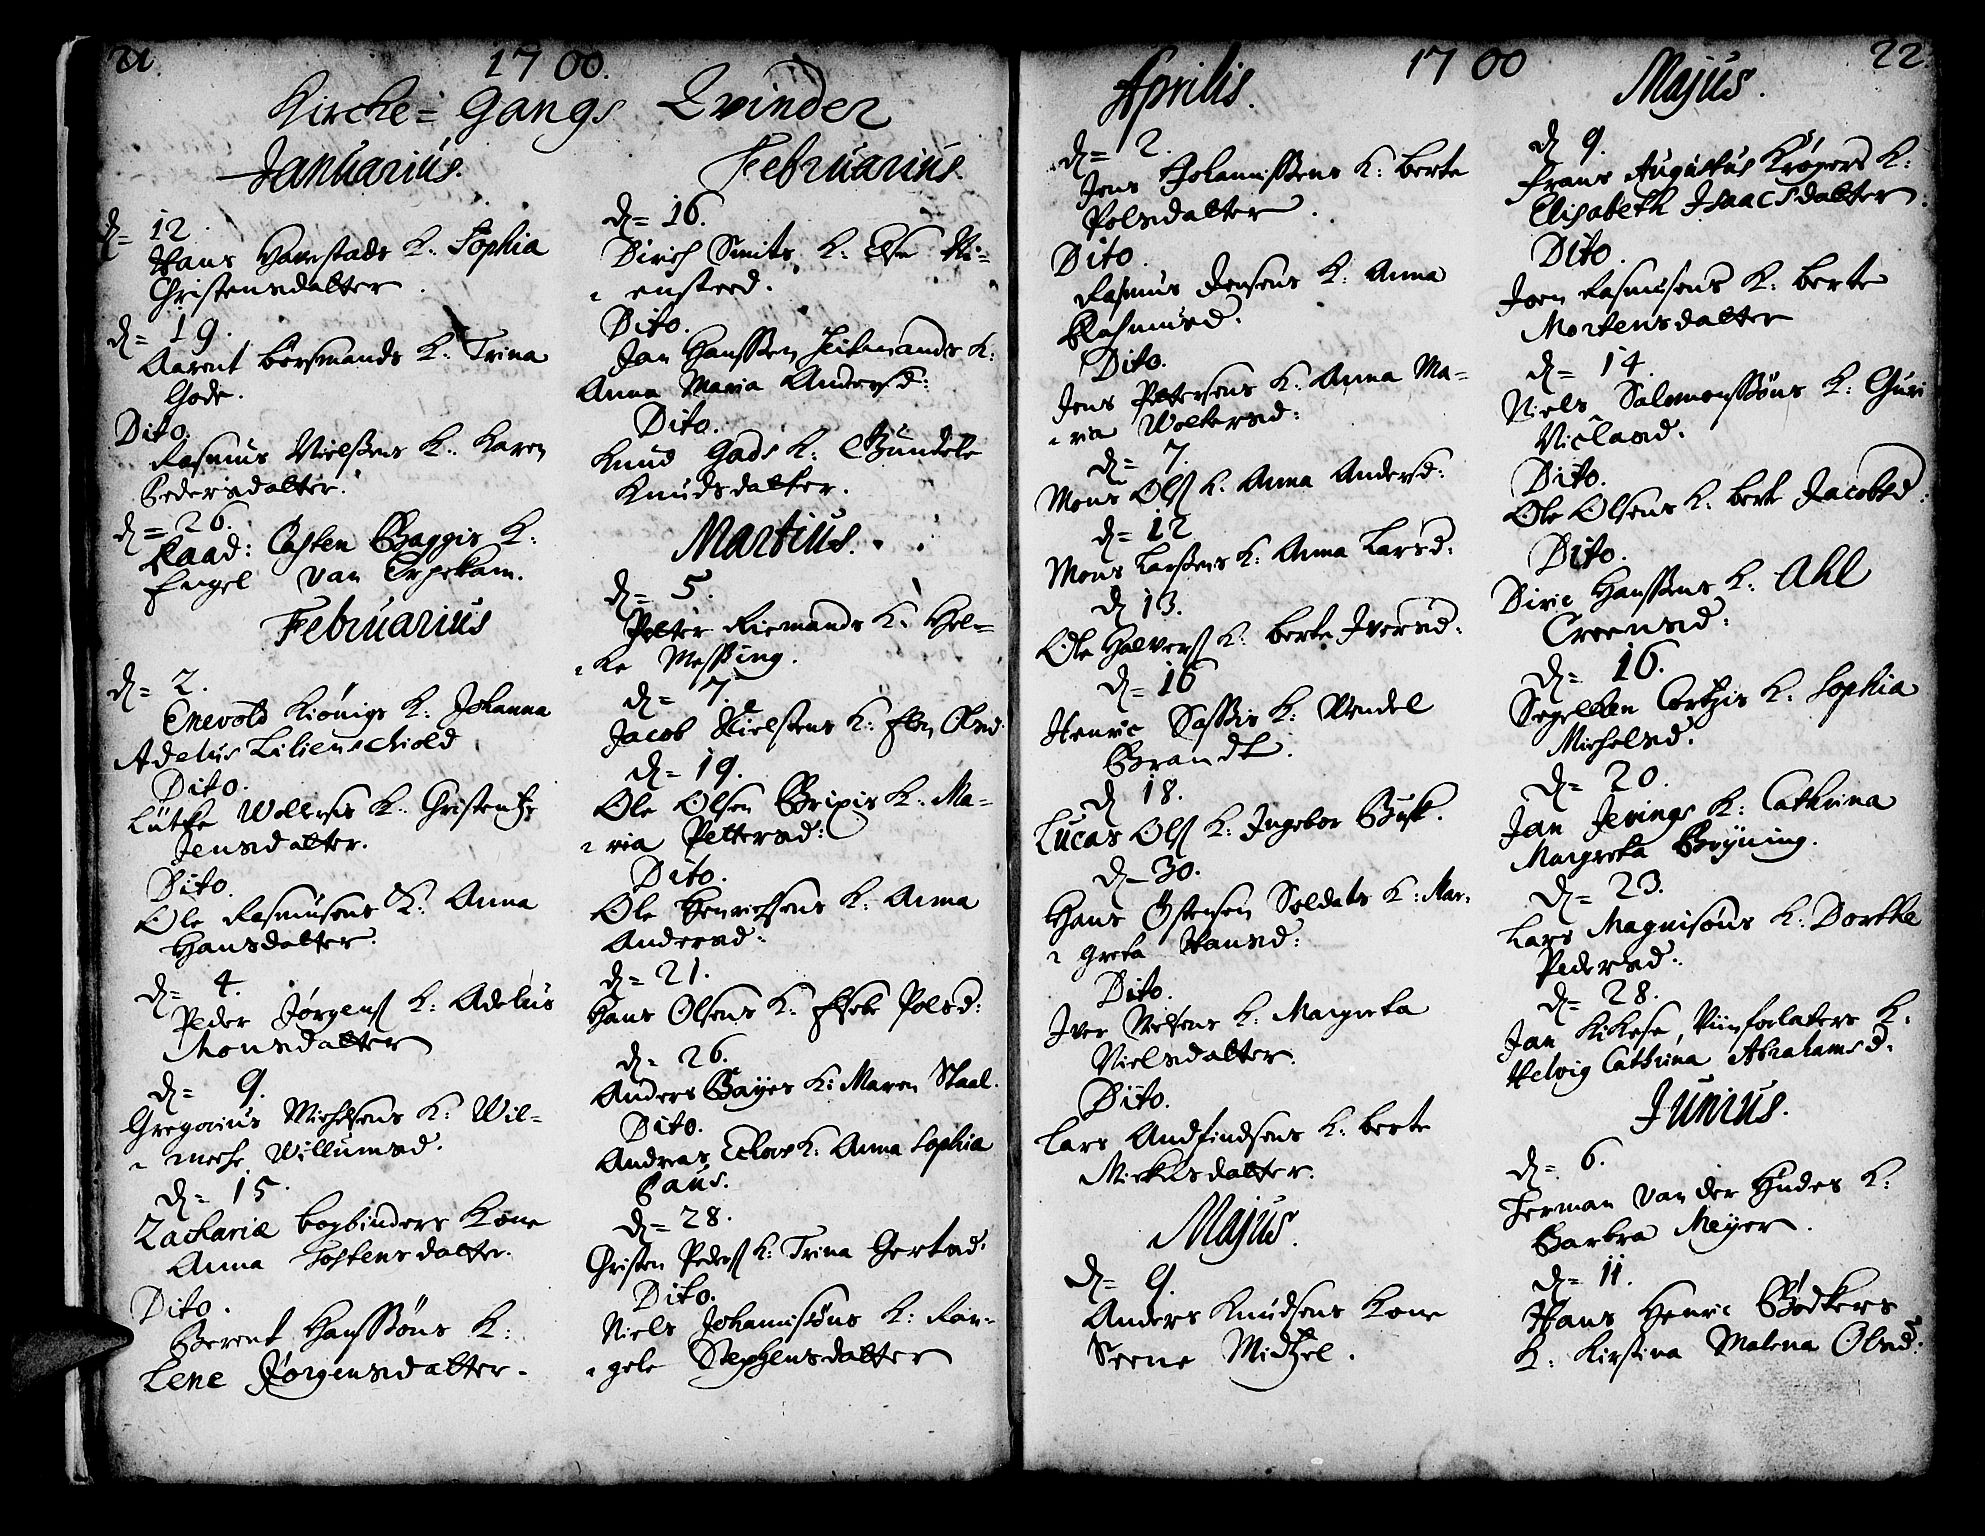 21
1700.
Kirche= Gangs Qvinder
Januarius.
d= 12.
Hans Hanestads K. Sophia
Christensdatter.
d= 19.
Aarent Borsmands K. Trina
Gode.
Dito
Rasmus Nielssens K. Karen
Pedersdatter.
d= 26.
Raad: Casten Baggis K.
Engel van Erpekam.
Februarius
d= 2.
Enevold Kiönigs K. Johanna
Adelus Lilienschiold
Dito.
Lütke Wolders K.
Jensdatter.
Dito.
Ole Rasmusens K. Anna
Hansdatter.
d= 4.
Peder Jørgens K. Adelus
Monsdatter
d= 9.
Gregorius Michelsens K: Wil=
meche Willumsd.
d= 15.
Zachariæ bogbinders Kone
Anna Tostensdatter.
Dito.
Berent Hanssøns K:
Lene Jørgensdatter.
Februarius.
d= 16.
Dirich Smits K. Else
ensteed.
Dito.
Jan Hanssen K:
Anna Maria Andersd:
Dito.
Knud Gads K: Gundele
Knudsdatter.
Martius.
d= 5.
Petter Riemands K: Hel=
ke Messing.
d= 7.
Jacob Nielssens K: Olsd:
d= 19.
Ole Olsen Brixis K. Ma=
ria Pettersd:
Dito.
Ole Henrichsens K. Anna
Andersd:
d= 21.
Hans Olsens K. Polsd:
d= 26.
Anders Bayer K: Maren Staal.
Dito.
Andreas K. Anna Sophia
Paus.
d= 28.
Christen Peders K: Trina Gertsd:
Dito.
Niels Johannissøns K. Ran=
gele Stephensdatter
1700
22
Aprilis.
d= 2.
Jens Johannissens K: berte
Polsdatter.
Dito.
Rasmus Jensens K: Anna
Rasmusd.
Dito.
Jens Pettersens K. Anna Ma=
ria Woltersd:
d= 7.
Mons Ols K. Anna Andersd:
d= 12
Mons Larssens K: Anna Larsd:
d 13.
Ole Halvors K: berte Iversd:
d= 16
Henric Sassis K: Wendel
Brandt.
d 18.
Lucas Ols K: Ingebor Busk.
d= 30.
Hans Østensen Soldats K: Mar=
greta Hansd:
Dito.
Iver Nelsens K. Margreta
Nielsdatter.
Dito.
Lars Andfindsens K. berte
Mickelsdatter.
Majus.
d= 9.
Anders Knudsens Kone
Seene Mitzel.
Majus.
d 9.
Frans Augustus Krøgers K:
Elisabeth Isaacsdatter.
Dito.
Joen Rasmusens K: berte
Mortensdatter
d= 14.
Niels Salomonssøns K: Guri
Nielsd.
Dito.
Ole Olsens K. berte Jacobsd:
Dito.
Diric Hanssens K. Ahl
Creensd:
d= 16.
Segelken Cortzis K. Sophia
Michelsd.
d= 20.
Jan Jerings K: Cathrina
Margreta Bryning.
d= 23.
Lars Magnisøns K: Dorthe
Pedersd:
d= 28.
Jan Kikese, K.
Helvig Cathrina Abrahamsd:
Junius.
d= 6.
Herman van der Hudes K:
Barbra Meyer.
d= 11.
Hans Henric Bødkers
K. Kirstina Malena Olsd: